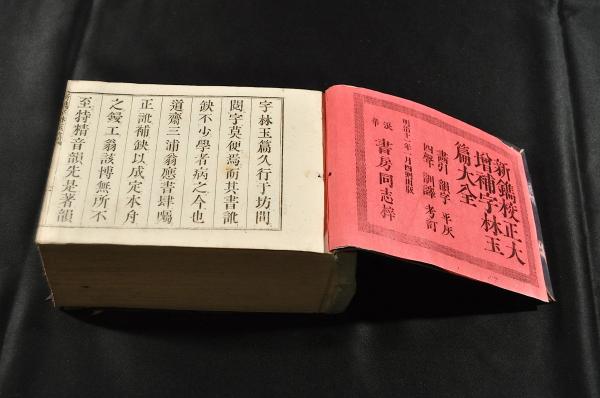 新鐫校正大
增補字林玉
篇大全
畫引 韻字 平仄
四聲 訓譯 考訂
明治十一年一月四刻出版
浪華 書房同志梓
字林玉篇久行于坊間
閱字莫便焉而其書訛
缺不少學者病之今也
道齋三浦翁應書肆囑
正訛補缺以成定本舟
之鋟工翁該博無所不
至特精音韻先是著韻